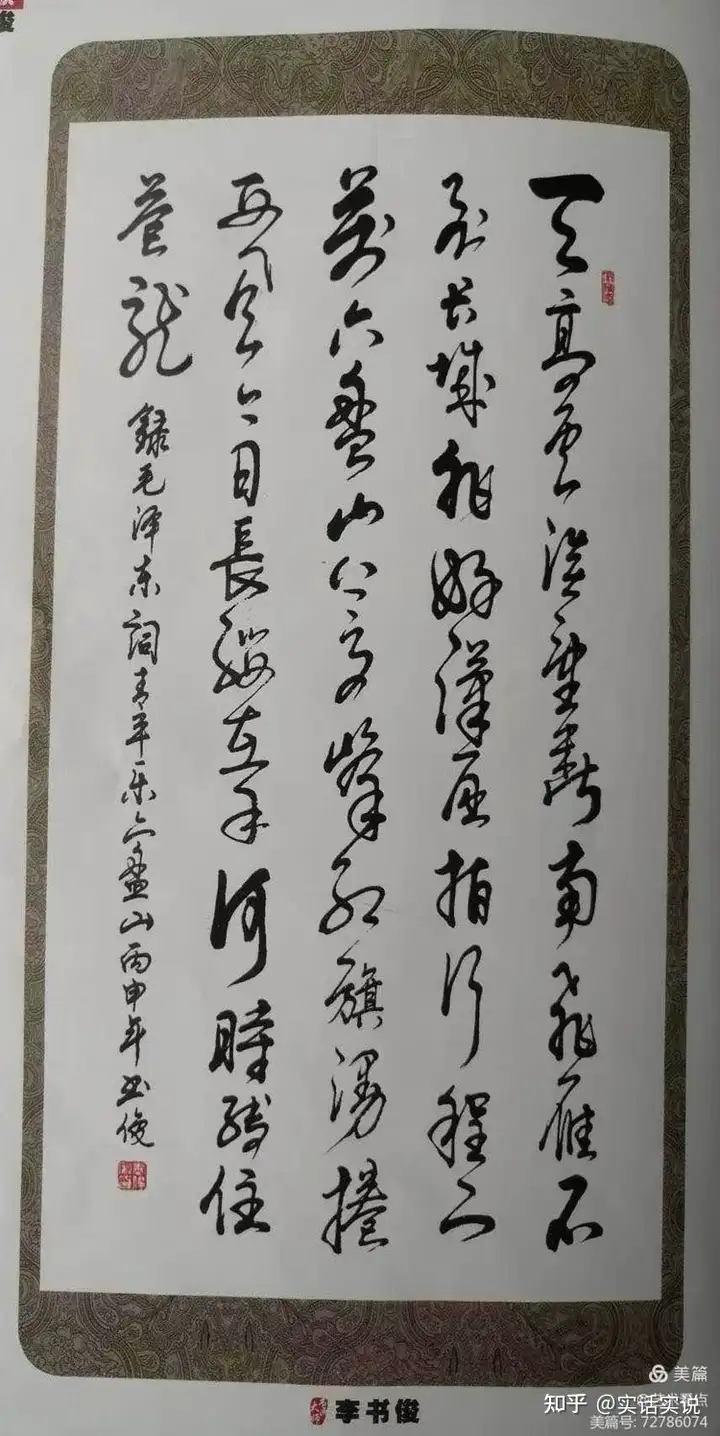 天高雲淡望斷南飛雁不
到长城非好漢屈指行程二
萬六盤山上高峯紅旗漫捲
西風今日長纓在手何時縛住
蒼龍
錄毛泽东詞青平乐六盤山丙申年书俊
李书俊
俊
美篇
知乎 @实话实说
美篇号: 72786074